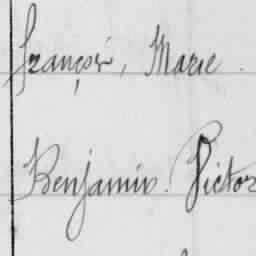 françois, Marie
Benjamin. Victor